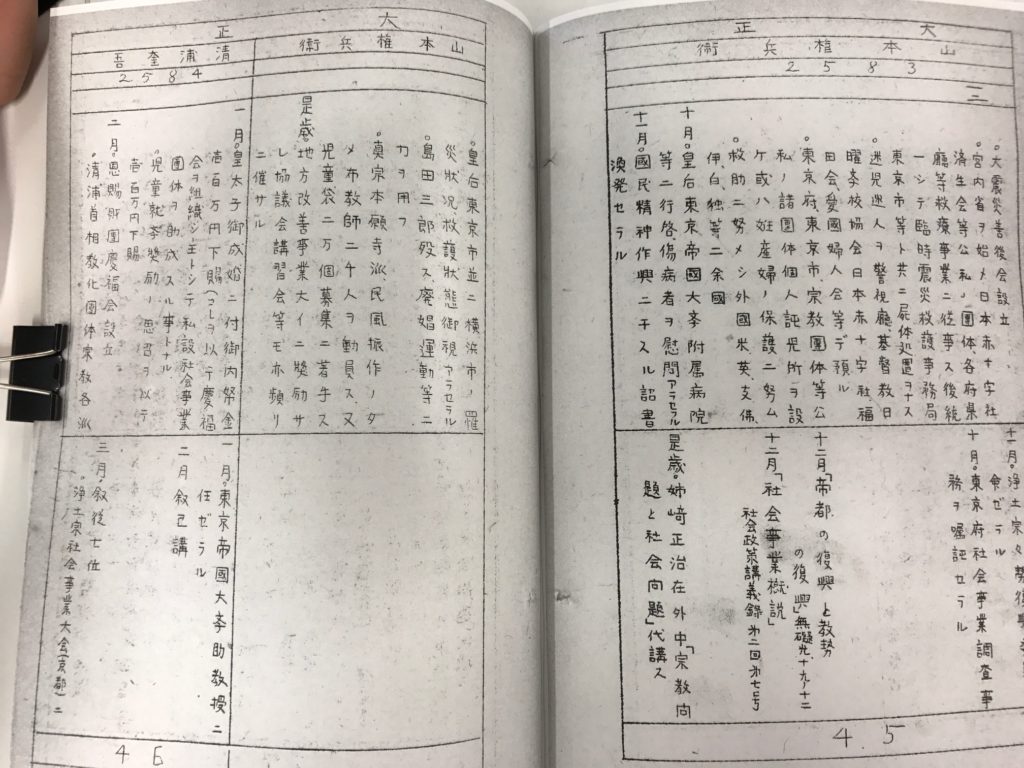 大正
山本権兵衛
2583
二
。大震災善後会設立
。宮内省ヲ始メ日本赤十字社
済生会等公私ノ團体各府県
廳等救療事業ニ従事ス後統
一シテ臨時震災救護事務局
東京市等ト共ニ屍体処置ヲナス
。迷児迷人ヲ警視廳基督教日
曜李校協会日本赤十字社福
田会愛國婦人会等デ預ル
。東京府東京市宗教團体等公
私ノ諸團体個人託児所ヲ設
ケ或ハ姙産婦ノ保護ニ努ム
。救助ニ努メシ外國米英支佛
伊白独等二余國
十月。皇后東京帝國大李附属病院
等ニ行啓傷病者ヲ慰問アラセラル
十一月。國民精神作興ニ干スル詔書
渙発セラル
十一月。浄土宗
命ゼラル
十月。東京府社会事業調査事
務ヲ嘱託セラル
十二月「帝都の復興と教勢
の復興」無礙光十九ノ十二
十二月「社会事業概説」
社会政策講義録 第二回第七号
是歳。姉崎正治在外中「宗教問
題と社会問題」代講ス
45
大正
山本権兵衛
清浦奎吾
2584
。皇后東京市並ニ横浜市ノ罹
災状況救護状態御視アラセラル
。島田三郎歿ス廃娼運動等ニ
力ヲ用フ
。真宗本願寺派民風振作ノタ
メ布教師二千人ヲ動員ス又
児童袋二万個募集ニ着手ス
是歳。地方改善事業大イニ奬励サ
レ協議会講習会等モ亦頻リ
ニ催サル
一月。皇太子御成婚ニ付御内帑金
壱百万円下賜(コレヲ以テ慶福
会ヲ組織シ主トシテ私設社会事業
團体ヲ助成スル事トナル
。児童就李奬励ノ思召ヲ以テ
壱百万円下賜
二月。恩賜財團慶福会設立
。清浦首相教化團体宗教各派
一月。東京帝國大李助教授ニ
任ゼラル
二月 叙己講
三月。叙従七位
。浄土宗社会事業大会(京都)ニ
46